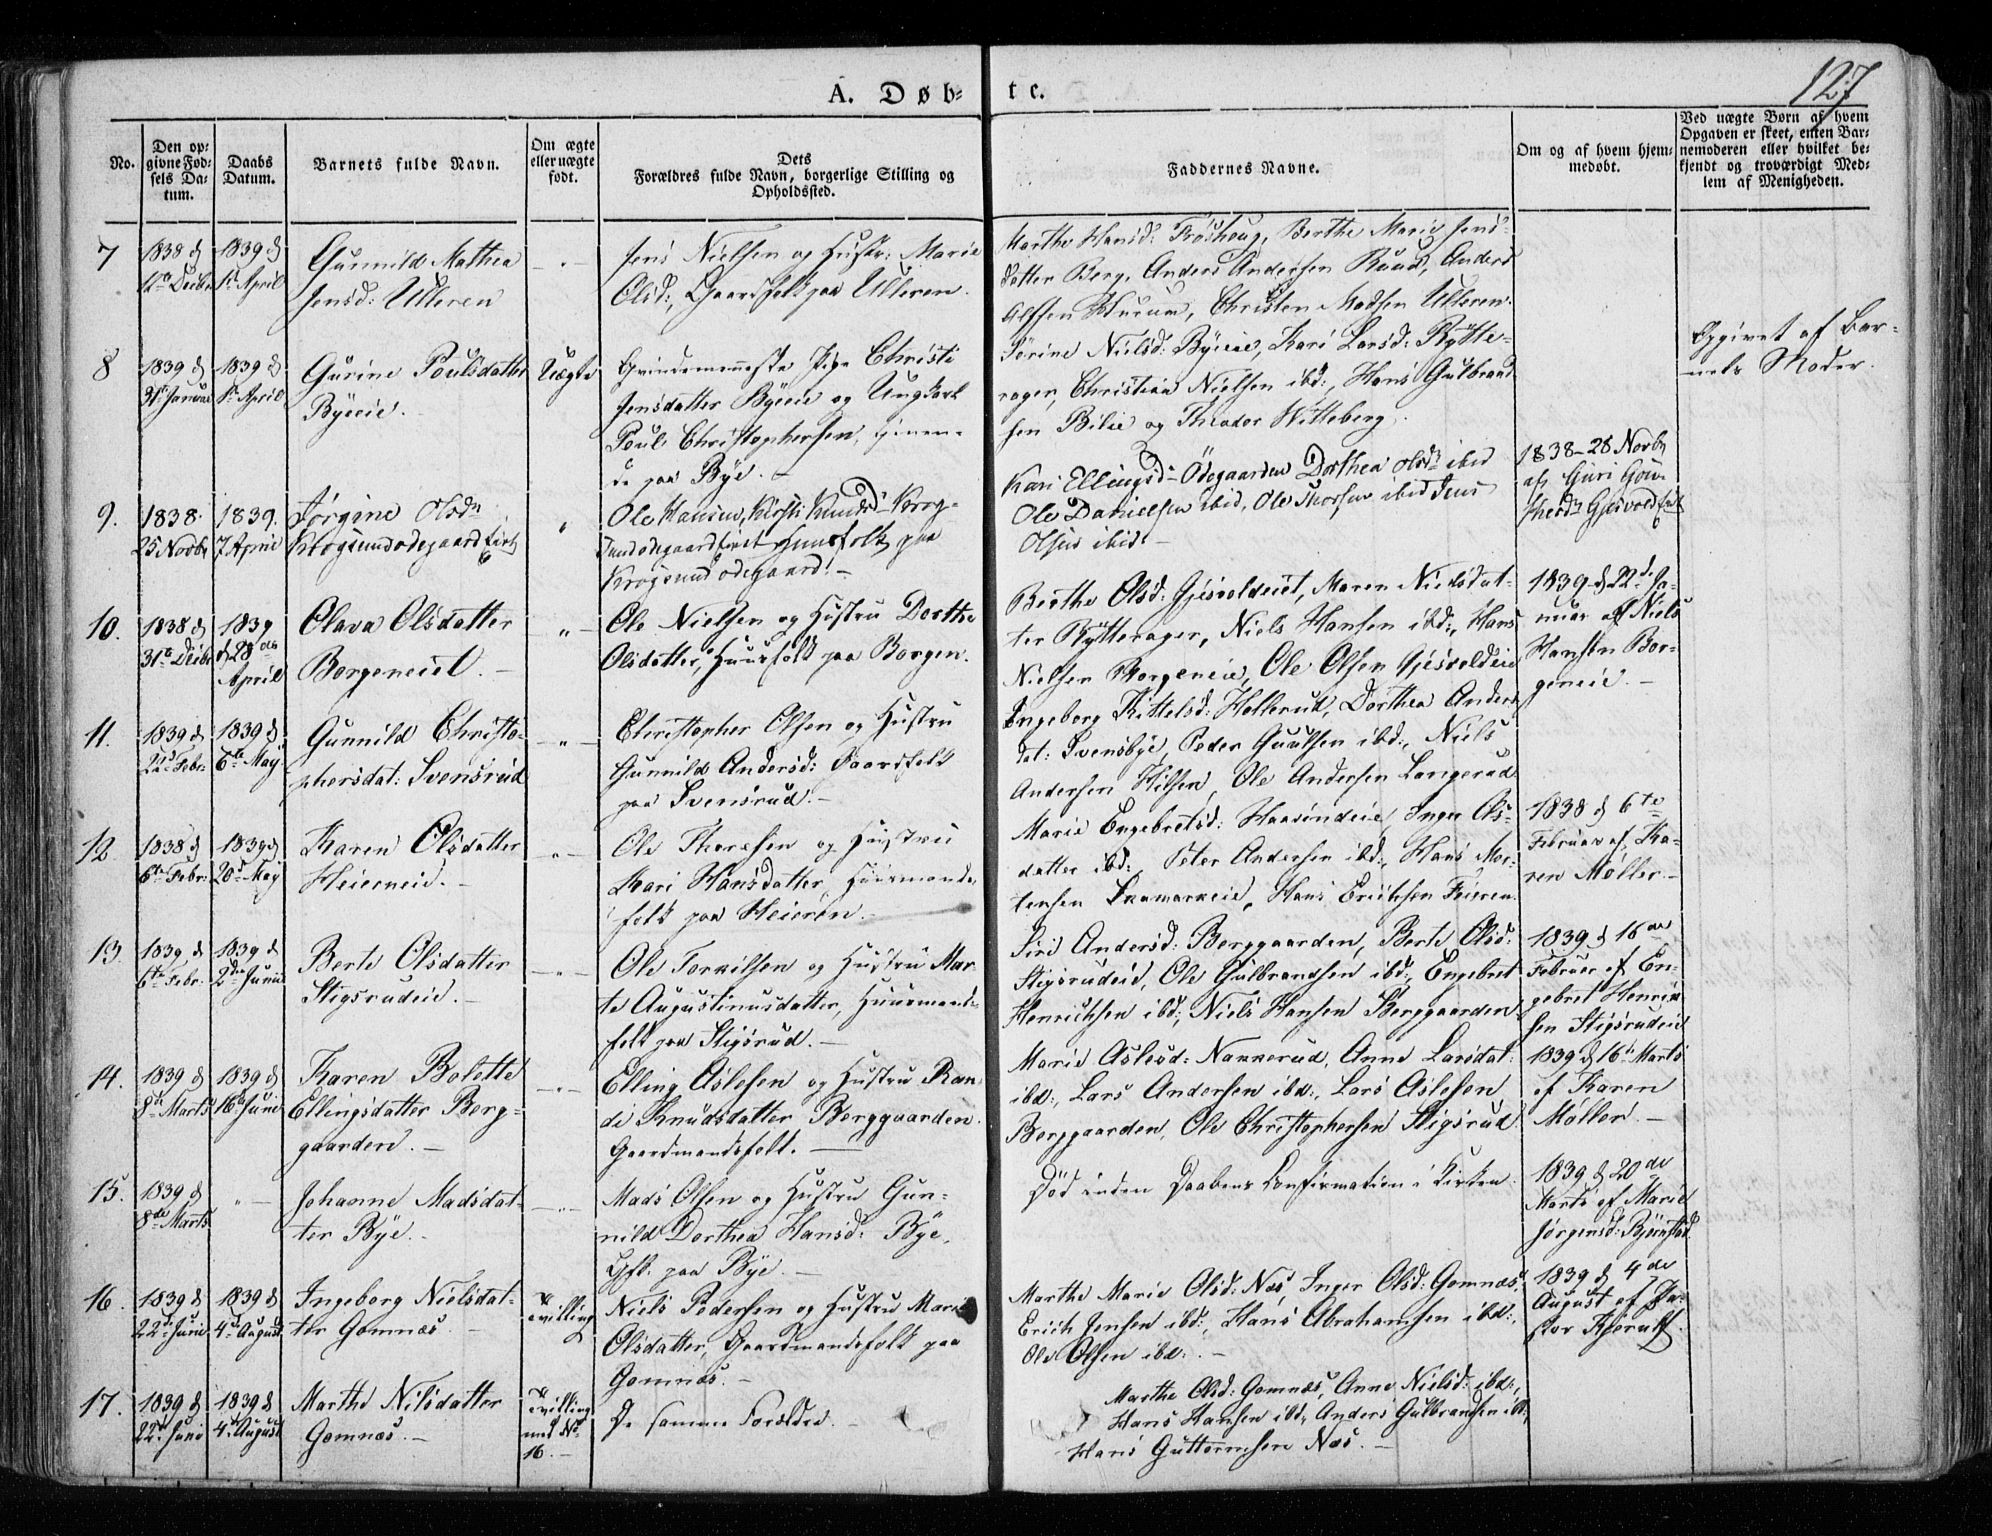 127
A. Døb- te.
No.
Den op-
givne Fød-
sels Da-
tum.
Daabs
Datum.
Barnets fulde Navn.
Om ægte
eller uægte
født.
Dets
Forældres fulde Navn, borgerlige Stilling og
Opholdssted.
Faddernes Navne.
Om og af hvem hjem-
medøbt.
Ved uægte Børn af hvem
Opgaven er skeet, enten Bar-
nemoderen eller hvilket be-
kjendt og troværdigt Med-
lem af Menigheden.
7
1838 d
Decbr
1839 d
1ste April
Gunnild Mathea
Jensd: Ulleren
Jens Nielsen og Hustr: Marie
Olsd:, Gaardfolk paa Ulleren.
Marthe Hansd: Frøshoug, Berthe Marie Jens-
datter Berg, Anders Andersen Ruud, Anders
Alfsen Hurum, Christen Madsen Ulleren.
8
1839 d
31te Januar
1839 d
1ste April
Gurine Poulsdatter
Byeeie.
Uægte
Qvindemenneske Pige Christi
Jensdatter Byeeie og Ungkarl
Poul Christophersen, tjenen-
de paa Bye.
Sørine Nielsd: Byeeie, Kari Larsd: Rytte-
rager, Christian Nielsen ibd:, Hans Gulbrand
sen Bilie og Theodor Witteberg.
Opgivet af Bar-
nets Moder.
9.
1838.
25 Novbr
1839.
7 April
Jørgine Olsdr
Krogsundødegaard
Ole Hansen, Kirsti Knudsd Krog-
sundødegaard Huusfolk paa
Krogsund ødegaard. -
Kari Ellingsd - Ødegaarden Dorthea Olsdr ibid
Ole Danielsen ibid, Ole Thorsen ibid Jens
Olsen ibid. -
1838 - 28 Novbr
af Guri Gun-
10.
1838 d
31te Decbr
1839
d 28de
April
Olava Olsdatter
Borgeneiet. -
Ole Nielsen og Hustru Dorthe
Olsdatter, Huusfolk paa Borgen.
Berthe Olsd: Gjesvoldeiet, Maren Nielsdat-
ter Rytterager, Niels Hansen ibd:, Hans
Nielsen Borgeneie, Ole Olsen Gjesvoldeie
1839 d 22de Ja-
nuar af Niels
Hansen Bor-
geneie. -
11.
1839 d
22de Febr:
1839 d
6te May
Gunnild Christo-
phersdat: Svensrud
Christopher Olsen og Hustru
Gunnild Andersd: Gaardfolk
paa Svensrud. -
Ingeborg Kittelsd: Hollerud, Dorthea Anders
dat: Svensbye, Peder Guulsen ibd:, Niels
Andersen Hilsen, Ole Andersen Langerud
12
1838 d
6te Febr:
1839 d
20de May
Karen Olsdatter
Heieneie. -
Ole Thoresen og Hustru
Kari Hansdatter, Huusmands
folk paa Heieren. -
Marie Engebretsd: Haarindeie, Inger Ols-
datter ibd:, Peter Andersen ibd:, Hans Mor-
tensen Damarkeie, Hans Erichsen Feieren.
1838 d 6te
Februar af Ka-
ren Møller. -
13
1839 d
6te Febr:
1839 d
2den Junii
Berte Olsdatter
Stigsrudeie. -
Ole Torkilsen og Hustru Mar-
te Augustinusdatter, Huusmands-
folk paa Stigsrud. -
Siri Andersd: Berggaarden, Berte Olsd:
Stigsrudeie, Ole Gulbrandsen ibd:, Engebret
Henrichsen ibd:, Niels Hansen Berggaarden
1839 d 16de
Februar af En-
gebret Henrik
sen Stigsrudeie
14.
1839 d
8de Marts
1839 d
16de Juni
Karen Bolette
Ellingsdatter Berg-
gaarden. -
Elling Aslesen og Hustru Ran
di Knudsdatter, Berggaarden.
Gaardmandsfolk. -
Marie Aslesd: Nakkerud, Anne Larsdat:
ibd:, Lars Andersen ibd:, Lars Aslesen
Berggaarden, Ole Christophersen Stigsrud
1839 d 16de Marts
af Karen
Møller. -
15.
1839 d
8de Marts
Johanne Madsdat-
ter Bye. -
Mads Olsen og Hustru Gun-
nild Dorthea Hansd: Bye,
Gfk. paa Bye. -
Død inden Daabens Confirmation i Kirken.
1839 d 20de
Marts af Marie
Jørgensd: Bjørnstad
16.
1839 d
22de Juni
1839 d
4de August
Ingeborg Nielsdat-
ter Gomnæs. -
Tvilling
Niels Pedersen og Hustru Marie
Olsdatter, Gaardmandsfolk paa
Gomnæs. -
Marthe Marie Olsd: Næs, Inger Olsd: Gomnæs,
Erich Jensen ibd:, Hans Abrahamsen ibd:,
Ole Olsen ibd: -
1839 d 4de
August af Pa-
stor Kjerulf.
17.
1839 d
22de Juni
1839 d
4de August
Marthe Nilsdatter
Gomnæs. -
Tvilling
med No
16. -
De samme Forældre.
Marthe Olsd: Gomnæs, Anne Nielsd: ibd:,
Hans Hansen ibd:, Anders Gulbrandsen ibd:,
Hans Guttormsen Næs. -